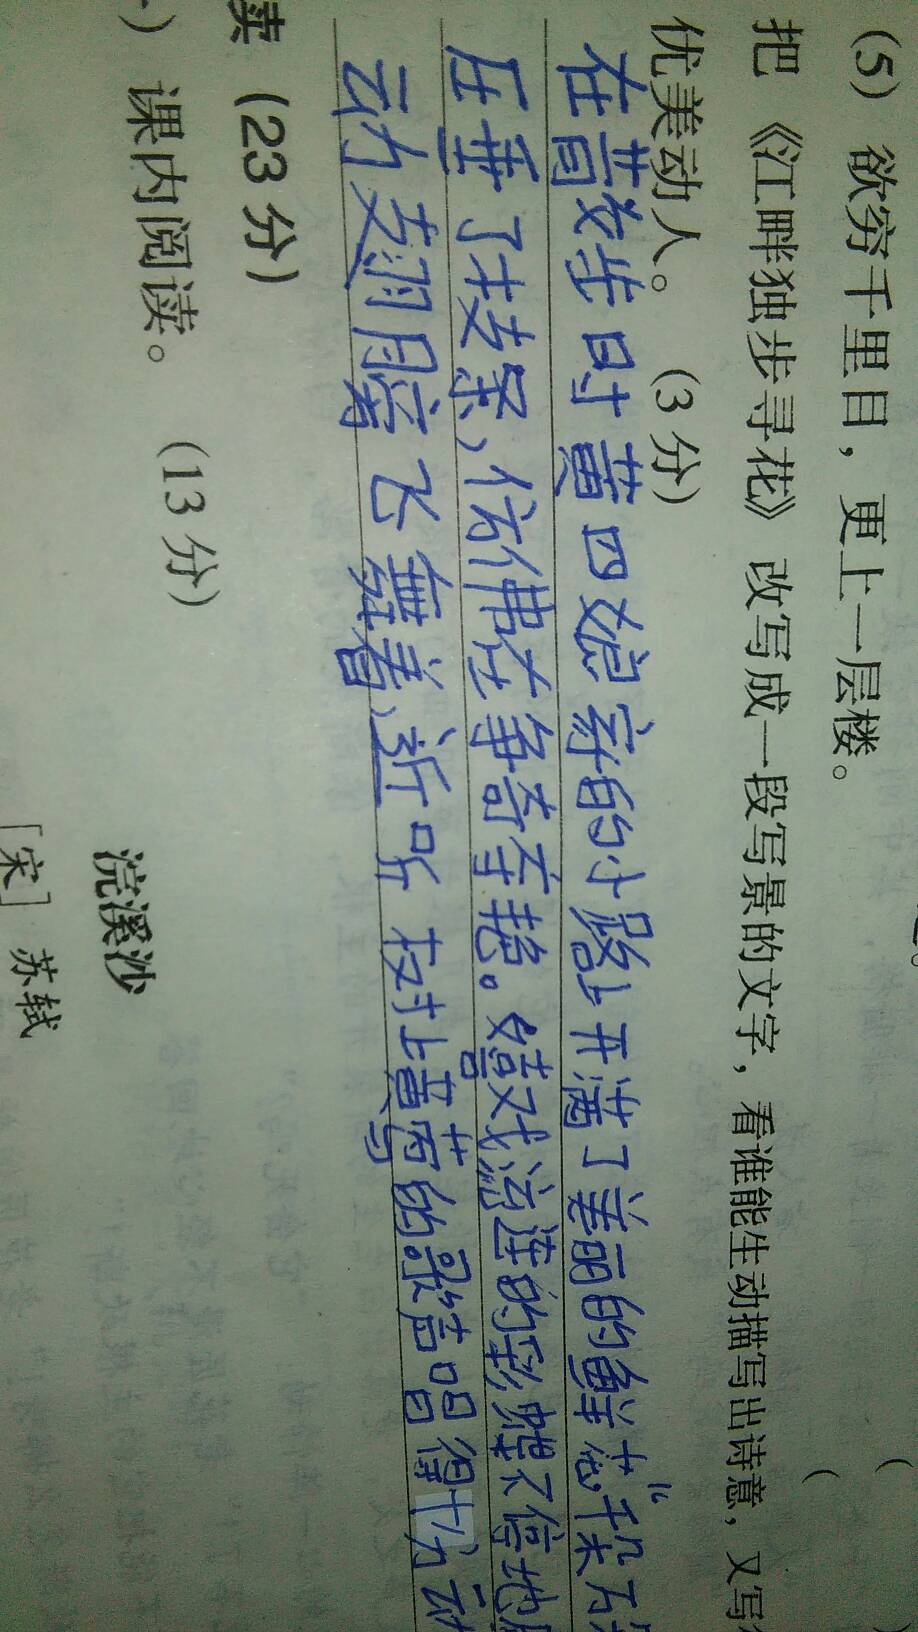 (5) 欲穷千里目，更上一层楼。
把《江畔独步寻花》改写成一段写景的文字，看谁能生动描写出诗意，又写
优美动人。 (3分)
在散步时黄四娘家的小路上开满了美丽的鲜花，千朵万
压垂了枝条、仿佛在争奇夺艳。嬉戏流连的彩蝶不停地
动支翅膀飞舞着，近听枝上黄莺的歌声唱得十分动
读 (23分)
) 课内阅读。 (13分)
浣溪沙
[宋] 苏轼